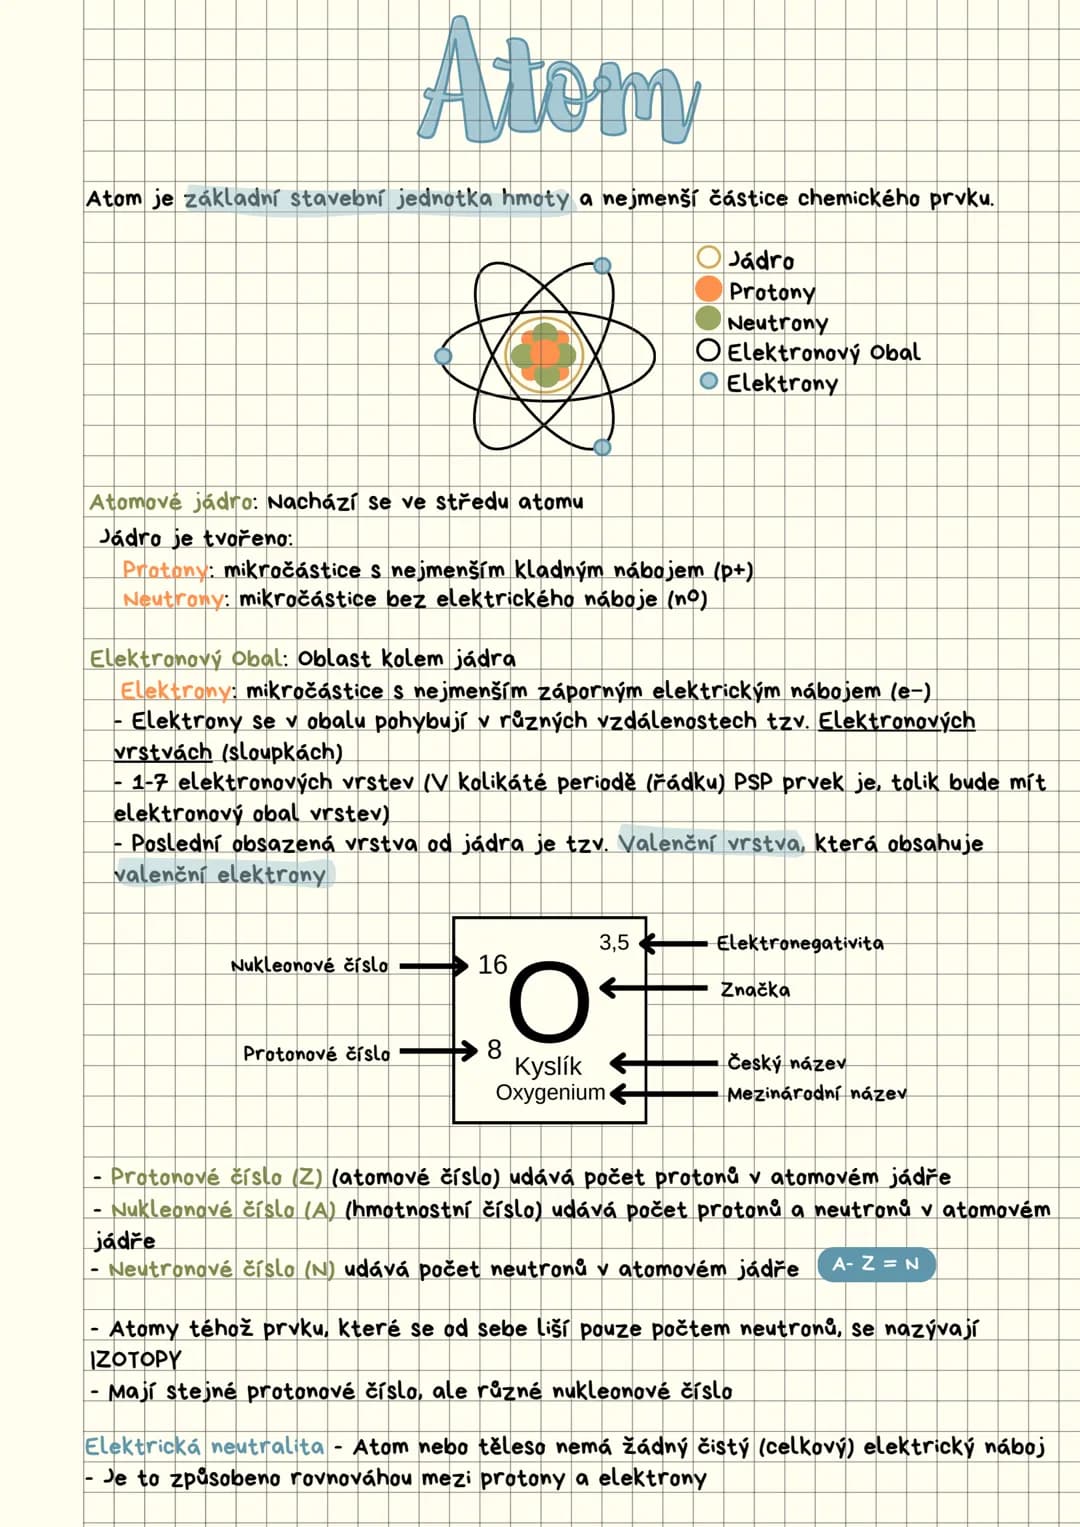 Atom
Atom je základní stavební jednotka hmoty a nejmenší částice chemického prvku.
Jádro
Protony
Neutrony
Elektronový Obal
Elektrony
Atomové jádro: Nachází se ve středu atomu
Jádro je tvořeno:
Protony: mikročástice s nejmenším kladným nábojem (p+)
Neutrony: mikročástice bez elektrického náboje (nº)
Elektronový Obal: Oblast kolem jádra
Elektrony: mikročástice s nejmenším záporným elektrickým nábojem (e-)
- Elektrony se v obalu pohybují v různých vzdálenostech tzv. Elektronových
vrstvách (sloupkách)
- 1-7 elektronových vrstev (V kolikáté periodě (řádku) PSP prvek je, tolik bude mít
elektronový obal vrstev)
- Poslední obsazená vrstva od jádra je tzv. Valenční vrstva, která obsahuje
valenční elektrony
3,5 Elektronegativita
Nukleonové číslo 16
O Značka
Protonové číslo 8
Kyslík Český název
Oxygenium Mezinárodní název
- Protonové číslo (Z) (atomové číslo) udává počet protonů v atomovém jádře
- Nukleonové číslo (A) (hmotnostní číslo) udává počet protonů a neutronů v atomovém
jádře
- Neutronové číslo (N) udává počet neutronů v atomovém jádře A- Z = N
- Atomy téhož prvku, které se od sebe liší pouze počtem neutronů, se nazývají
IZOTOPY
- Mají stejné protonové číslo, ale různé nukleonové číslo
Elektrická neutralita - Atom nebo těleso nemá žádný čistý (celkový) elektrický náboj
- Je to způsobeno rovnováhou mezi protony a elektrony